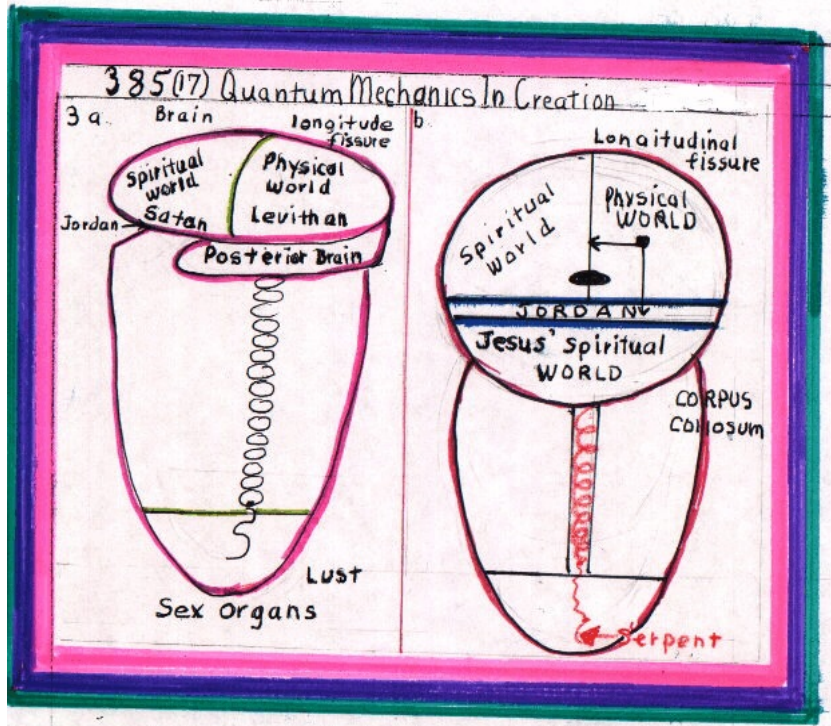 385(17) Quantum Mechanics In Creation
3 a.
Brain
longitude
fissure
Spiritual
world
Satan
Physical
world
Levithan
Jordan
Posterior Brain
Lust
Sex Organs
b
Longitudinal
fissure
Spiritual
world
Physical
WORLD
JORDAN
Jesus' Spiritual
WORLD
CORPUS
Collosum
Serpent